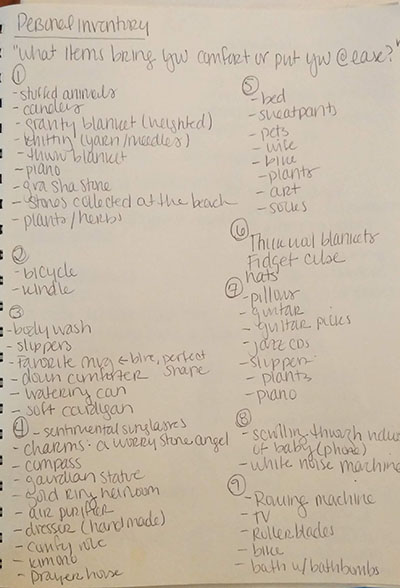 Personal inventory
"What items bring you comfort or put you @ ease?"
①
- stuffed animals
- candles
- gravity blanket (weighted)
- knitting (yarn/needles)
- throw blanket
- piano
- gua sha stone
- stones collected at the beach
- plants/herbs
②
- bicycle
- kindle
③
- body wash
- slippers
- favorite mug ← blue, perfect shape
- down comforter
- watering can
- soft cardigan
④ - sentimental sunglasses
- charms: a worry stone angel
- compass
- gaurdian statue
- gold ring heirloom
- air purifier
- dresser (handmade)
- comfy robe
- kimono
- prayer
⑤
- bed
- sweatpants
- pets
- wine
- bike
- plants
- art
- socks
⑥
Thick wool blankets
Fidget cube
hats
⑦
- pillows
- guitar
- guitar picks
- jazz CDs
- slippers
- plants
- piano
⑧
- scrolling through
of baby (phone)
- white noise machine
⑨
- Rowing machine
- TV
- Rollerblades
- bike
- bath w/ bathbombs